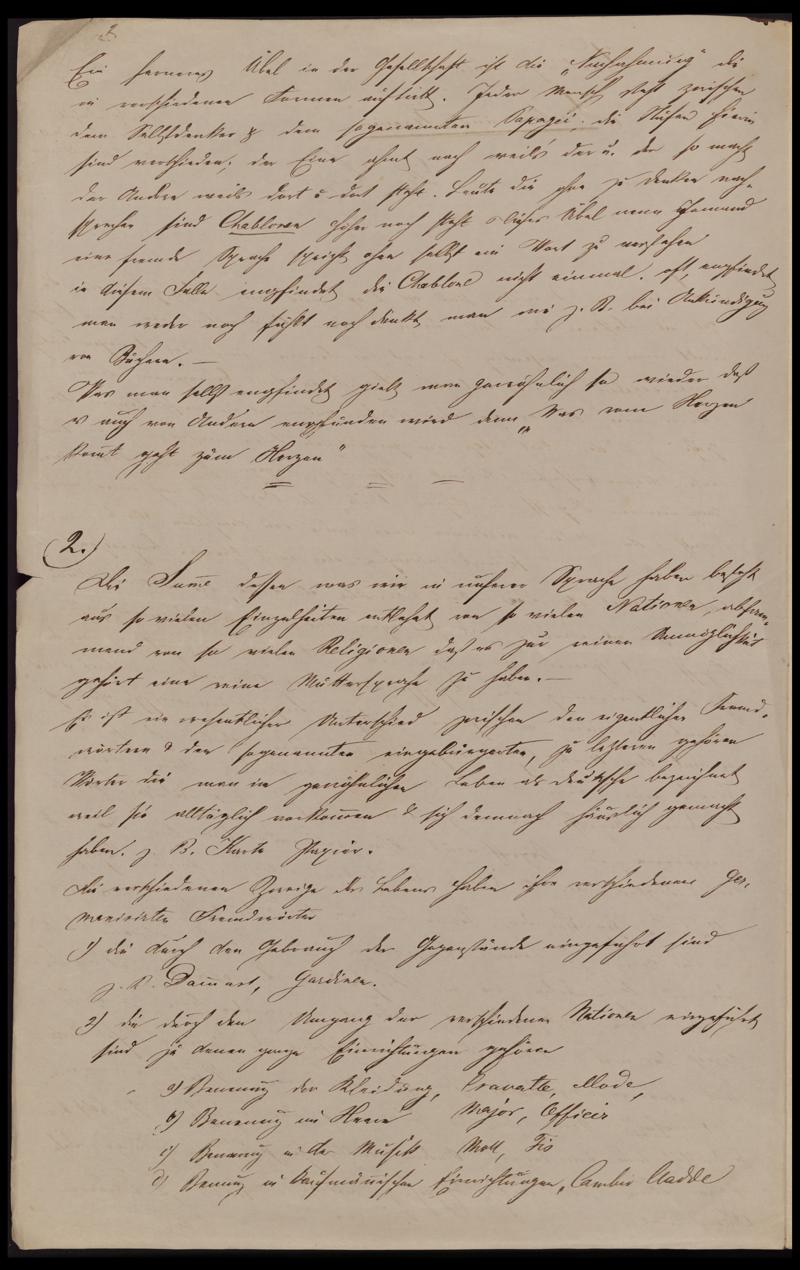 Ein ferneres Übel in der Gesellschaft ist die „Nachahmung" die
in verschiedenen Formen auftritt. Jeder Mensch steht zwischen
dem Selbstdenker & dem sogenannten Papagei; die Stufen hierin
sind verschieden; der Eine ahmt nach weils der u. der so macht
der Andere weils dort u dort steht. Leute die ohne zu denken nach-
sprechen sind Chablonen höher noch steht dieses Übel wenn Jemand
eine fremde Sprache spricht ohne selbst ein Wort zu verstehen
in diesem Falle empfindet die Chablone nicht einmal. oft empfindet
man weder noch fühlt noch denkt man wie z. B. bei Ankündigung
von Büchern. —
Was man selbst empfindet giebt man gewöhnlich so wieder daß
es auch von Andern empfunden wird denn „Was vom Herzen
kommt geht zum Herzen"
2.)
Die Summe dessen was wir in unserer Sprache haben besteht
aus so vielen Einzelheiten entlehnt von so vielen Nationen, abstam-
mend von so vielen Religionen daß es zur reinen Unmöglichkeit
gehört eine reine Muttersprache zu haben. —
Es ist ein wesentlicher Unterschied zwischen den eigentlichen Fremd-
wörtern & den sogenannten eingebürgerten, zu letzteren gehören
Wörter die man im gewöhnlichen Leben als deutsche bezeichnet
weil sie alltäglich vorkommen & sich demnach häuslich gemacht
haben. z. B. Karte Papier.
Die verschiedenen Zweige des Lebens haben ihre verschiedenen ger-
manisirten Fremdwörter
1) die durch den Gebrauch der Gegenstände eingeführt sind
z. B. Dammast, Gardinen.
2) die durch den Umgang der verschiedenen Nationen eingeführt
sind zu denen ganze Einrichtungen gehören
a) Benennung der Kleidung, Cravatte, Mode,
b) Benennung im Heere Major, Officir
c) Benennung in der Musik Moll, Fis
d) Benennung in kaufmännischen Einrichtungen, Cambio